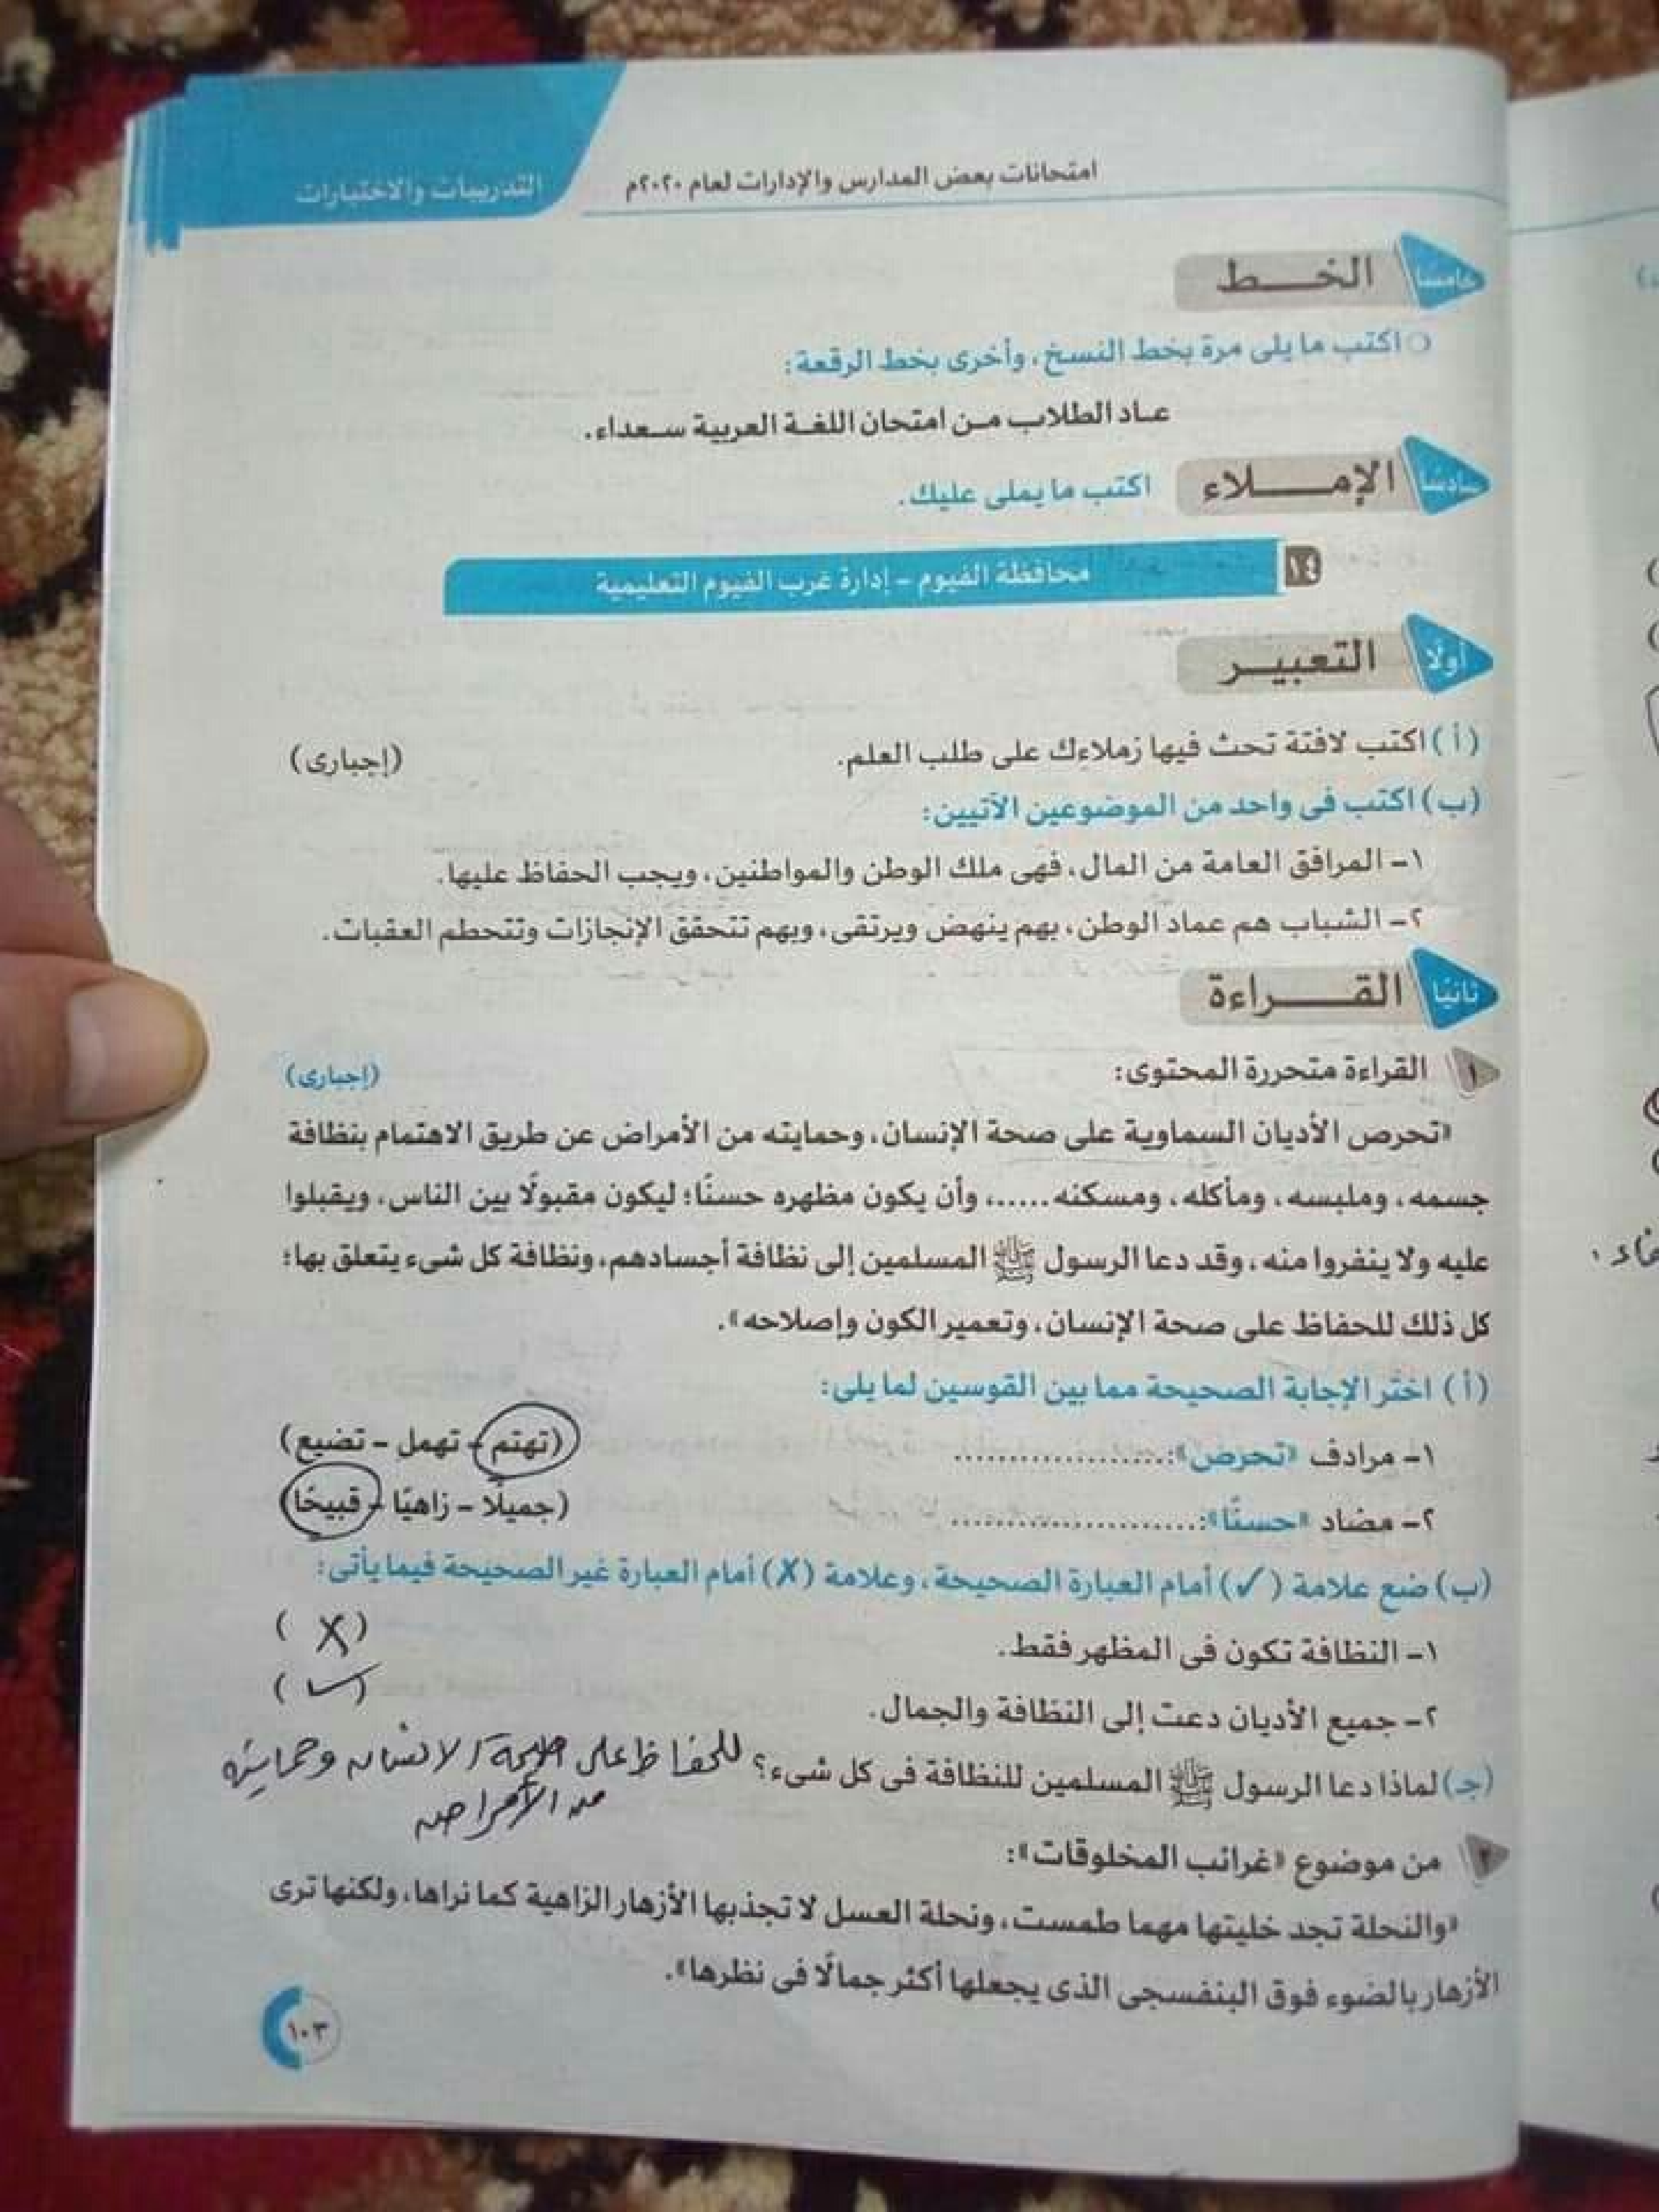 امتحانات بعض المدارس والإدارات لعام ٢٠٢٠م
التدريبات والاختبارات
خامسًا الخـــط
اكتب ما يلى مرة بخط النسخ، وأخرى بخط الرقعة:
عـاد الطلاب مـن امتحان اللغـة العربية سـعداء.
سادسًا الإمـــــلاء اكتب ما يملى عليك.
١٤ محافظة الفيوم - إدارة غرب الفيوم التعليمية
أولًا التعبيـر
(أ) اكتب لافتة تحث فيها زملاءك على طلب العلم. (إجبارى)
(ب) اكتب فى واحد من الموضوعين الآتيين:
١- المرافق العامة من المال، فهى ملك الوطن والمواطنين، ويجب الحفاظ عليها.
٢- الشباب هم عماد الوطن، بهم ينهض ويرتقى، وبهم تتحقق الإنجازات وتتحطم العقبات.
ثانيًا القـــــراءة
١ القراءة متحررة المحتوى: (إجبارى)
«تحرص الأديان السماوية على صحة الإنسان، وحمايته من الأمراض عن طريق الاهتمام بنظافة
جسمه، وملبسه، ومأكله، ومسكنه......، وأن يكون مظهره حسنًا؛ ليكون مقبولًا بين الناس، ويقبلوا
عليه ولا ينفروا منه، وقد دعا الرسول ﷺ المسلمين إلى نظافة أجسادهم، ونظافة كل شىء يتعلق بها؛
كل ذلك للحفاظ على صحة الإنسان، وتعمير الكون وإصلاحه».
(أ) اختر الإجابة الصحيحة مما بين القوسين لما يلى:
١- مرادف «تحرص»: .................... (تهتم - تهمل - تضيع)
٢- مضاد «حسنًا»: ....................... (جميلًا - زاهيًا - قبيحًا)
(ب) ضع علامة (✓) أمام العبارة الصحيحة، وعلامة (✗) أمام العبارة غير الصحيحة فيما يأتى:
١- النظافة تكون فى المظهر فقط. (✗)
٢- جميع الأديان دعت إلى النظافة والجمال. (✓)
(جـ) لماذا دعا الرسول ﷺ المسلمين للنظافة فى كل شىء؟ للحفاظ على صحة الانسان وحمايته
من الأمراض
٢ من موضوع «غرائب المخلوقات»:
«والنحلة تجد خليتها مهما طمست، ونحلة العسل لا تجذبها الأزهار الزاهية كما نراها، ولكنها ترى
الأزهار بالضوء فوق البنفسجى الذى يجعلها أكثر جمالًا فى نظرها».
١٠٣